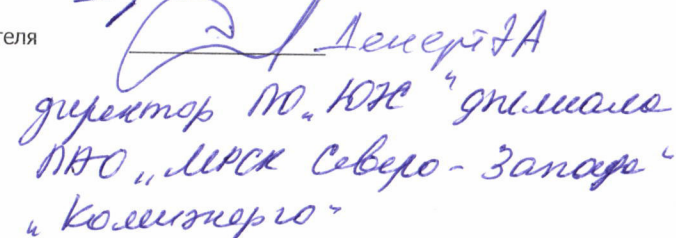 теля
Денерт ЭА
директор ПО „ЮЭС“ филиала
ПАО „МРСК Северо-Запада“
„Комиэнерго“